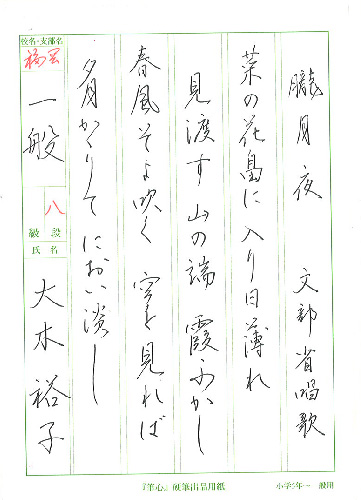 朧月夜 文部省唱歌
菜の花畠に 入り日薄れ
見渡す山の端 霞ふかし
春風そよ吹く 空を見れば
夕月かゝりて におい淡し
校名・支部名
一般
八
段級
氏名
大木裕子
『筆心』硬筆出品用紙
小学5年〜一般用